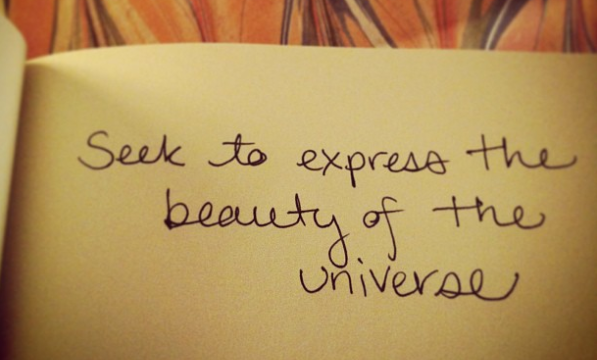 Seek to express the
beauty of the
universe